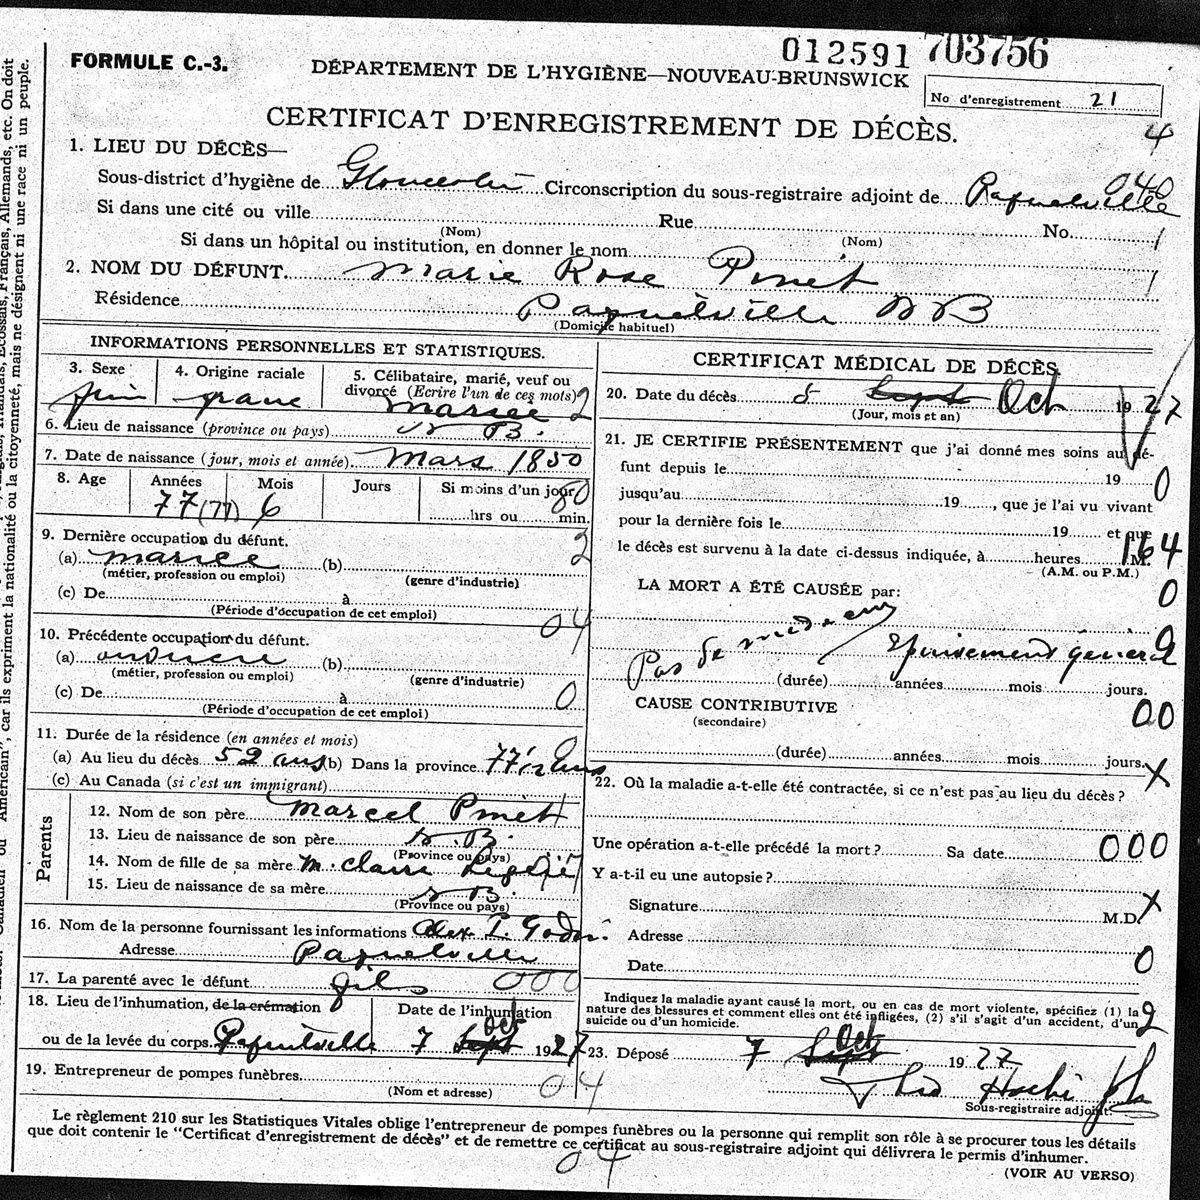 012591 703756
FORMULE C.-3.
DÉPARTEMENT DE L'HYGIÈNE—NOUVEAU-BRUNSWICK
No d'enregistrement 21
CERTIFICAT D'ENREGISTREMENT DE DÉCÈS.
4
1. LIEU DU DÉCÈS—
040
Sous-district d'hygiène de Gloucester Circonscription du sous-registraire adjoint de Paquetville
Si dans une cité ou ville Rue No.
(Nom) (Nom)
Si dans un hôpital ou institution, en donner le nom
2. NOM DU DÉFUNT. Marie Rose Pinet
Résidence Paquetville N B
(Domicile habituel)
INFORMATIONS PERSONNELLES ET STATISTIQUES.
3. Sexe 4. Origine raciale 5. Célibataire, marié, veuf ou
divorcé (Ecrire l'un de ces mots) 2
mariee
6. Lieu de naissance (province ou pays) N B.
7. Date de naissance (jour, mois et année) Mars 1850
8. Age Années Mois Jours Si moins d'un jour 80
77 (77) 6 hrs ou min.
9. Dernière occupation du défunt. 2
(a) mariee (b)
(métier, profession ou emploi) (genre d'industrie)
(c) De à
(Période d'occupation de cet emploi)
04
10. Précédente occupation du défunt.
(a) (b)
(métier, profession ou emploi) (genre d'industrie)
(c) De à 0
(Période d'occupation de cet emploi)
11. Durée de la résidence (en années et mois)
(a) Au lieu du décès 52 ans (b) Dans la province 77½ ans
(c) Au Canada (si c'est un immigrant)
Parents
12. Nom de son père Marcel Pinet
13. Lieu de naissance de son père N.B.
(Province ou pays)
14. Nom de fille de sa mère M. Claire
15. Lieu de naissance de sa mère N B.
(Province ou pays)
16. Nom de la personne fournissant les informations Alex P. Godin
Adresse Paquetville
17. La parenté avec le défunt fils 000
18. Lieu de l'inhumation, de la crémation Date de l'inhumation
ou de la levée du corps. Paquetville 7 Sept Oct 1927
19. Entrepreneur de pompes funèbres
(Nom et adresse) 04
CERTIFICAT MÉDICAL DE DÉCÈS
20. Date du décès 5 Sept Oct 1927
(Jour, mois et an)
21. JE CERTIFIE PRÉSENTEMENT que j'ai donné mes soins au dé-
funt depuis le 19 0
jusqu'au 19 , que je l'ai vu vivant
pour la dernière fois le 19 et que
le décès est survenu à la date ci-dessus indiquée, à heures M. 164
(A.M. ou P.M.)
LA MORT A ÉTÉ CAUSÉE par: 0
Pas de médecin Epuisement général
(durée) années mois jours.
CAUSE CONTRIBUTIVE 00
(secondaire)
(durée) années mois jours. X
22. Où la maladie a-t-elle été contractée, si ce n'est pas au lieu du décès?
Une opération a-t-elle précédé la mort? Sa date 000
Y a-t-il eu une autopsie?
Signature M.D. X
Adresse
Date 0
Indiquez la maladie ayant causé la mort, ou en cas de mort violente, spécifiez (1) la
nature des blessures et comment elles ont été infligées, (2) s'il s'agit d'un accident, d'un
suicide ou d'un homicide. 2
23. Déposé 7 Sept Oct 1927
Sous-registraire adjoint
Le règlement 210 sur les Statistiques Vitales oblige l'entrepreneur de pompes funèbres ou la personne qui remplit son rôle à se procurer tous les détails
que doit contenir le "Certificat d'enregistrement de décès" et de remettre ce certificat au sous-registraire adjoint qui délivrera le permis d'inhumer.
04
(VOIR AU VERSO)
Américain", car ils expriment la nationalité ou la citoyenneté, mais ne désignent ni une race ni un peuple.
Ecossais, Français, Allemands, etc. On doit